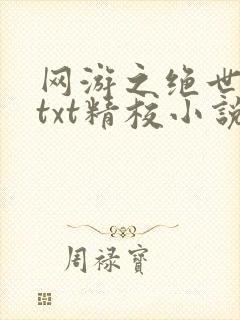 网游之绝世
txt精校小说
周禄宝